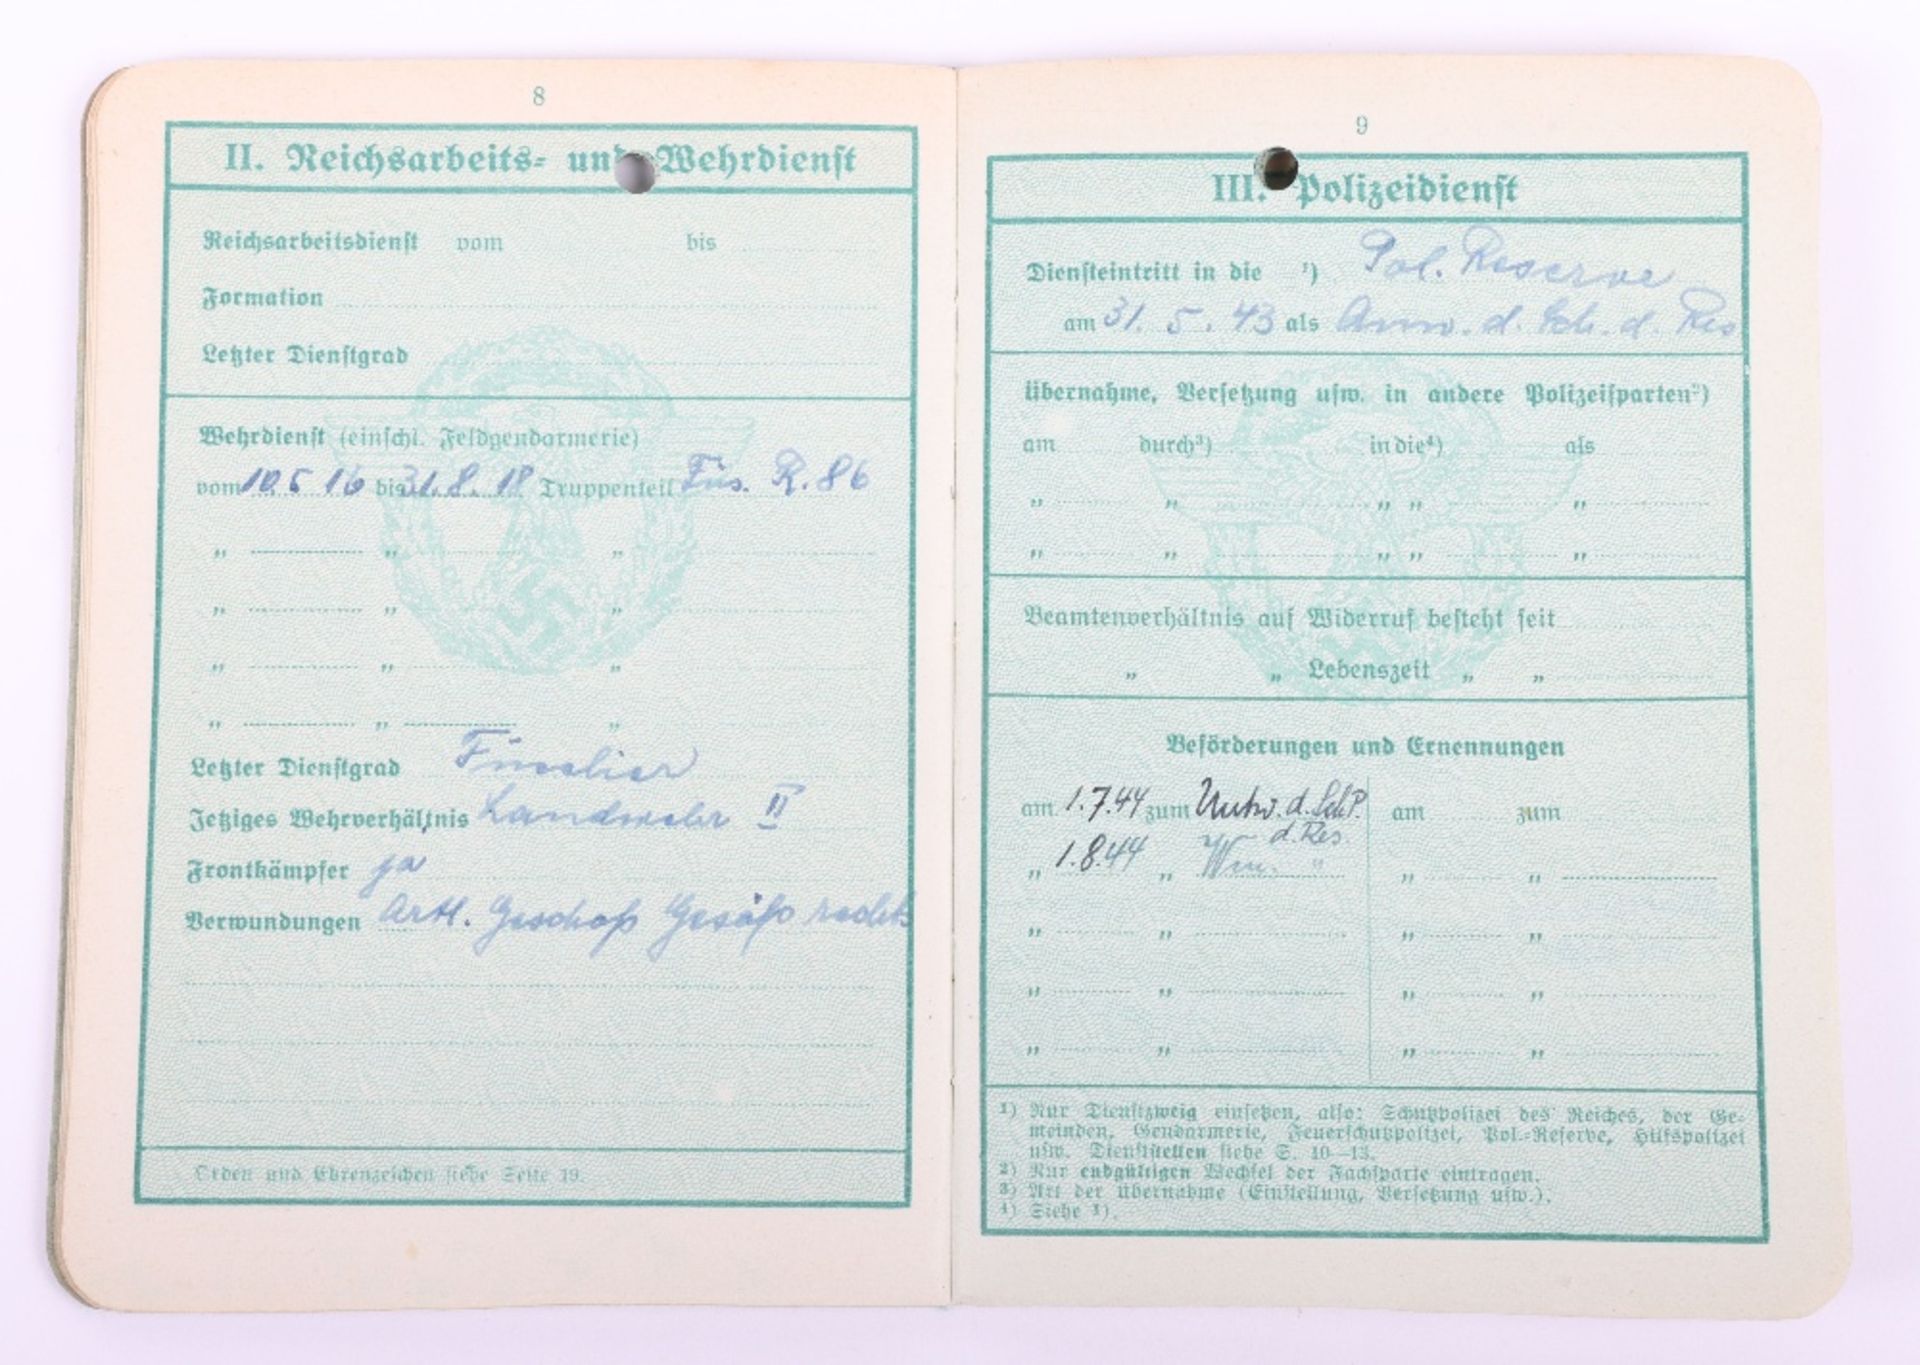 8
II. Reichsarbeits- und Wehrdienst
Reichsarbeitsdienst vom bis
Formation
Letzter Dienstgrad
Wehrdienst (einschl. Feldgendarmerie)
vom 10.5 16 bis 31.8.18 Truppenteil Füs. R. 86
" " "
" " "
" " "
" " "
Letzter Dienstgrad Füselier
Jetziges Wehrverhältnis Landwehr II
Frontkämpfer ja
Verwundungen Artl. Geschoß Gesäß rechts
Orden und Ehrenzeichen siehe Seite 19.
9
III. Polizeidienst
Diensteintritt in die ¹) Pol. Reserve
am 31. 5. 43 als Anw. d. Sch. d. Res
Übernahme, Versetzung usw. in andere Polizeisparten²)
am durch³) in die⁴) als
" " " " "
" " " " "
Beamtenverhältnis auf Widerruf besteht seit
" " Lebenszeit " "
Beförderungen und Ernennungen
am 1.7.44 zum Untw. d. SchP. am zum
d. Res.
" 1.8.44 " Wm. " " "
" " " "
" " " "
" " " "
¹) Nur Dienstzweig einsetzen, also: Schutzpolizei des Reiches, der Ge-
meinden, Gendarmerie, Feuerschutzpolizei, Pol.-Reserve, Hilfspolizei
usw. Dienststellen siehe S. 10—13.
²) Nur endgültigen Wechsel der Fachsparte eintragen.
³) Art der Übernahme (Einstellung, Versetzung usw.).
⁴) Siehe ¹).